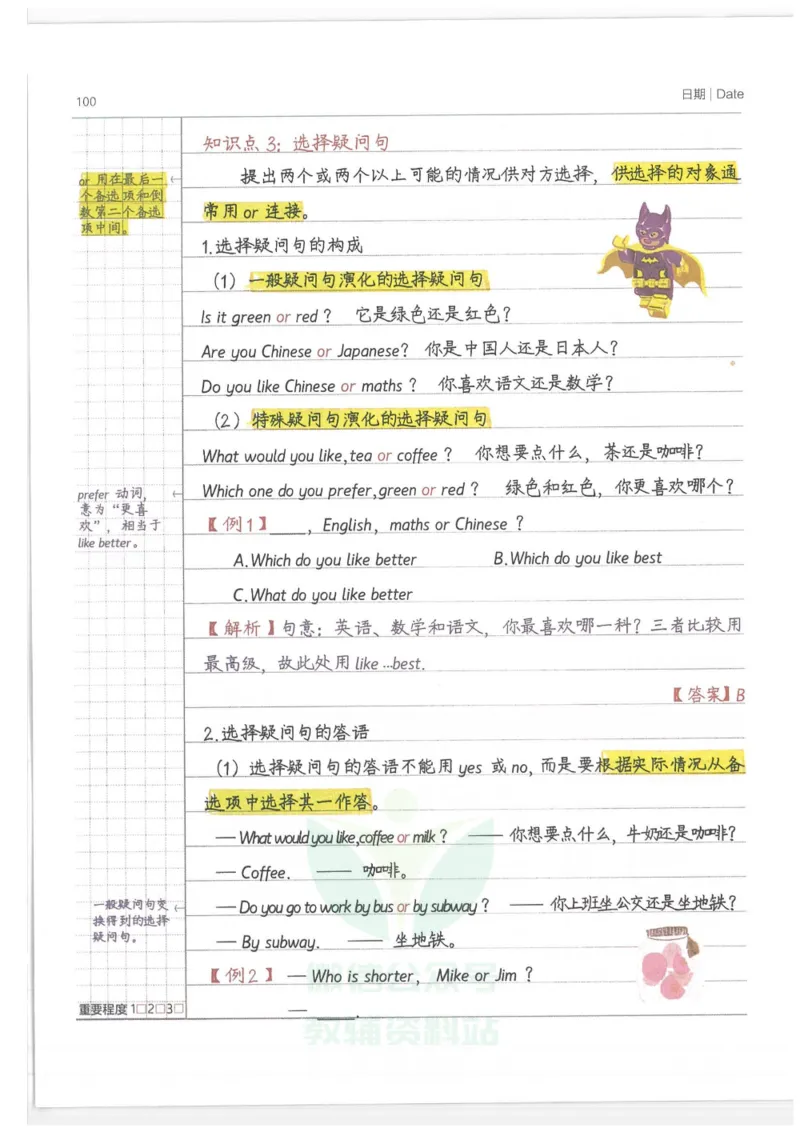 100
日期 | Date
知识点 3：选择疑问句
提出两个或两个以上可能的情况供对方选择，供选择的对象通
常用 or 连接。
or 用在最后一
个备选项和倒
数第二个备选
项中间。
1.选择疑问句的构成
（1）一般疑问句演化的选择疑问句
Is it green or red？ 它是绿色还是红色？
Are you Chinese or Japanese？ 你是中国人还是日本人？
Do you like Chinese or maths？ 你喜欢语文还是数学？
（2）特殊疑问句演化的选择疑问句
What would you like,tea or coffee？ 你想要点什么，茶还是咖啡？
Which one do you prefer,green or red？ 绿色和红色，你更喜欢哪个？
prefer 动词，
意为“更喜
欢”，相当于
like better。
【例1】____，English，maths or Chinese？
A.Which do you like better B.Which do you like best
C.What do you like better
【解析】句意：英语、数学和语文，你最喜欢哪一科？三者比较用
最高级，故此处用 like …best.
【答案】B
2.选择疑问句的答语
（1）选择疑问句的答语不能用 yes 或 no，而是要根据实际情况从备
选项中选择其一作答。
— What would you like,coffee or milk？ —— 你想要点什么，牛奶还是咖啡？
— Coffee. —— 咖啡。
— Do you go to work by bus or by subway？ —— 你上班坐公交还是坐地铁？
一般疑问句变
换得到的选择
疑问句。
— By subway. —— 坐地铁。
【例2】— Who is shorter，Mike or Jim？
— ____.
重要程度 1□2□3□
微信公众号
教辅资料站